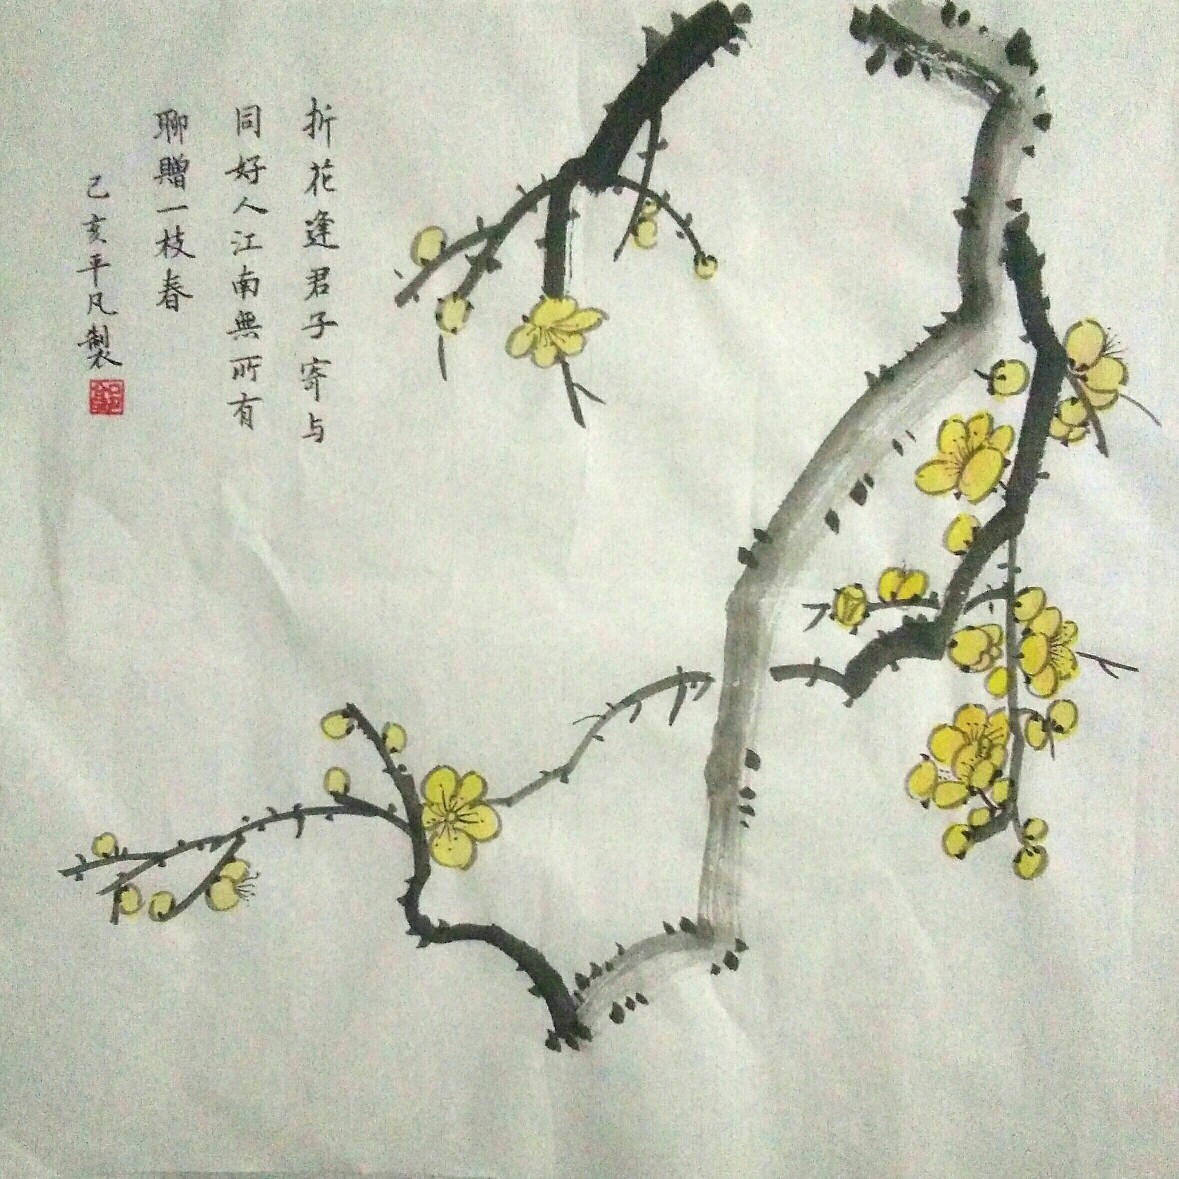 折花逢君子寄与
同好人江南無所有
聊贈一枝春
己亥平凡製